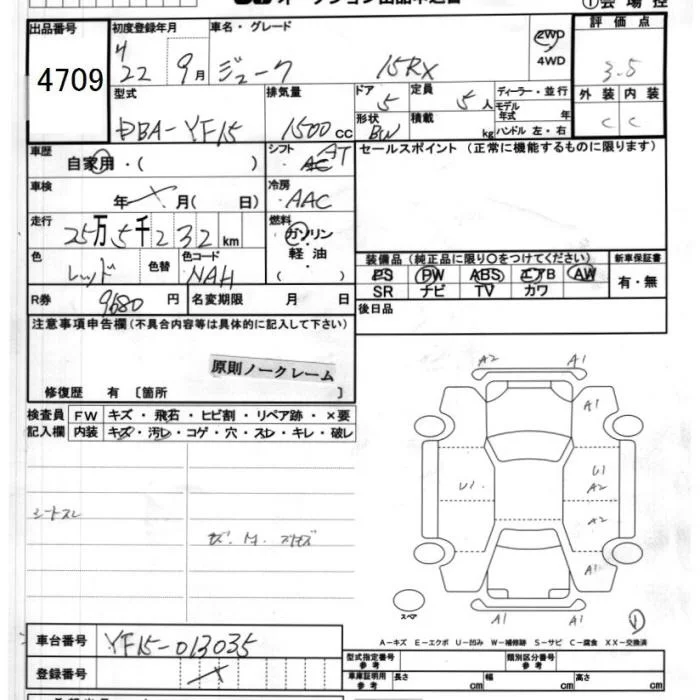 ①会場控
出品番号 4709
初度登録年月 H 22 9月
車名・グレード ジューク 15RX
2WD
4WD
評価点 3.5
型式 DBA-YF15
排気量 1500cc
ドア 5
形状 BW
定員 5人
積載 kg
ディーラー・並行
モデル年式 年
ハンドル 左・右
外装 C
内装 C
車歴 自家用・( )
シフト AT
セールスポイント (正常に機能するものに限ります)
車検 年 月( 日)
冷房 AAC
走行 25万5千232km
燃料 ガソリン
軽油
( )
色 レッド
色替
色コード NAH
装備品 (純正品に限り○をつけてください)
PS PW ABS エアB AW
SR ナビ TV カワ
新車保証書
有・無
R券 9680円
名変期限 月 日
後日品
注意事項申告欄(不具合内容等は具体的に記入して下さい)
原則ノークレーム
修復歴 有 〔箇所 〕
検査員記入欄
FW キズ・飛石・ヒビ割・リペア跡・×要
内装 キズ・汚レ・コゲ・穴・スレ・キレ・破レ
シートスレ
A2 A1
A1
U1 U1
A2
A2
A1
A1 A1
スペア
①
A-キズ E-エクボ U-凹み W-補修跡 S-サビ C-腐食 XX-交換済
車台番号 YF15-013035
登録番号
型式指定番号 参考
類別区分番号 参考
車庫証明用 参考 長さ cm 幅 cm 高さ cm